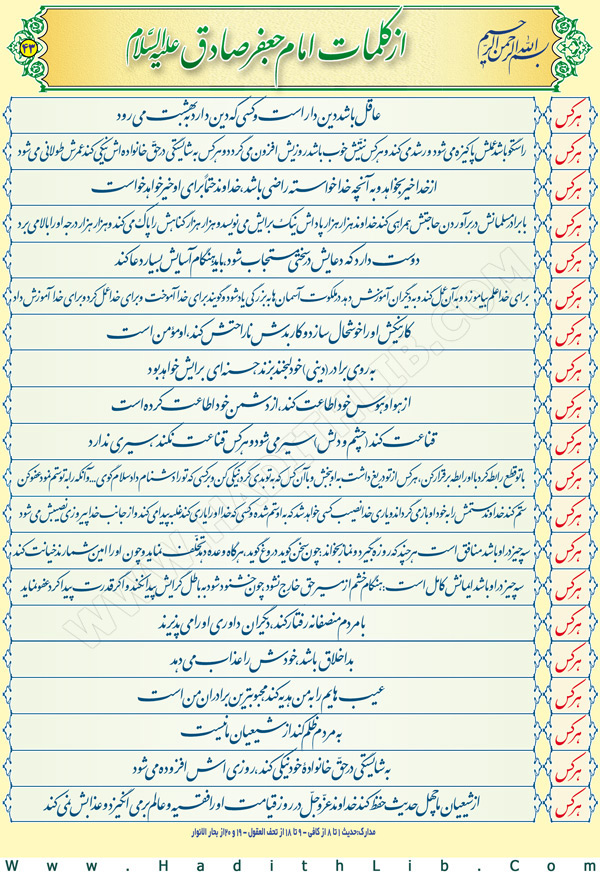 بسم الله الرحمن الرحیم
از کلمات امام جعفر صادق علیه السلام
۴۳
هرکس عاقل باشد دین دار است و کسی که دین دارد به بهشت می رود
هرکس راستگو باشد عملش پاکیزه می شود و رشد می کند و هرکس نیتش خوب باشد روزیش افزون می گردد و هرکس به شایستگی در حق خانواده اش نیکی کند عمرش طولانی می شود
هرکس از خدا خیر بخواهد و به آنچه خدا خواسته راضی باشد، خداوند حتماً برای او خیر خواهد خواست
هرکس با برادر مسلمانش در برآوردن حاجتش همراهی کند خداوند هزار هزار پاداش نیک برایش می نویسد و هزار هزار گناهش را پاک می کند و هزار هزار درجه او را بالا می برد
هرکس دوست دارد که دعایش در سختی مستجاب شود، باید هنگام آسایش بسیار دعا کند
هرکس برای خدا علم بیاموزد و به آن عمل کند و به دیگران آموزش دهد در ملکوت آسمان ها به بزرگی یاد شود و گویند برای خدا آموخت و برای خدا عمل کرد و برای خدا آموزش داد
هرکس کار نیکش او را خوشحال سازد و کار بدش ناراحتش کند، او مؤمن است
هرکس به روی برادر (دینی) خود لبخند بزند حسنه ای برایش خواهد بود
هرکس از هوا و هوس خود اطاعت کند، از دشمن خود اطاعت کرده است
هرکس قناعت کند (چشم و دلش) سیر می شود و هرکس قناعت نکند، سیری ندارد
هرکس با تو قطع رابطه کرد با او رابطه برقرار کن، هرکس از تو دریغ داشت به او ببخش و با آن کس که به تو بدی کرد نیکی کن و کسی که تو را دشنام داد سلام گوی ... و آنکه را به تو ستم نمود عفو کن
هرکس ستم کند خداوند ستمش را به خود او بازمی گرداند و یاری خدا نصیب کسی خواهد شد که به او ستم شده و کسی که خدا او را یاری کند غلبه پیدا می کند و از جانب خدا پیروزی نصیبش می شود
هرکس سه چیز در او باشد منافق است هر چند که روزه بگیرد و نماز بخواند: چون سخن گوید دروغ گوید، هرگاه وعده دهد تخلف نماید و چون او را امین شمارند خیانت کند
هرکس سه چیز در او باشد ایمانش کامل است: هنگام خشم از مسیر حق خارج نشود چون خشنود شود به باطل گرایش پیدا نکند و اگر قدرت پیدا کرد عفو نماید
هرکس با مردم منصفانه رفتار کند، دیگران داوری او را می پذیرند
هرکس بد اخلاق باشد، خودش را عذاب می دهد
هرکس عیب هایم را به من هدیه کند محبوبترین برادران من است
هرکس به مردم ظلم کند از شیعیان ما نیست
هرکس به شایستگی در حق خانوادۀ خود نیکی کند، روزی اش افزوده می شود
هرکس از شیعیان ما چهل حدیث حفظ کند خداوند عزّ و جلّ در روز قیامت او را فقیه و عالم برمی انگیزد و عذابش نمی کند
مدارک: حدیث ۱ تا ۸ از کافی - ۹ تا ۱۸ از تحف العقول - ۱۹ و ۲۰ از بحار الانوار
WWW.HADITHLIB.COM
Www.HadithLib.Com